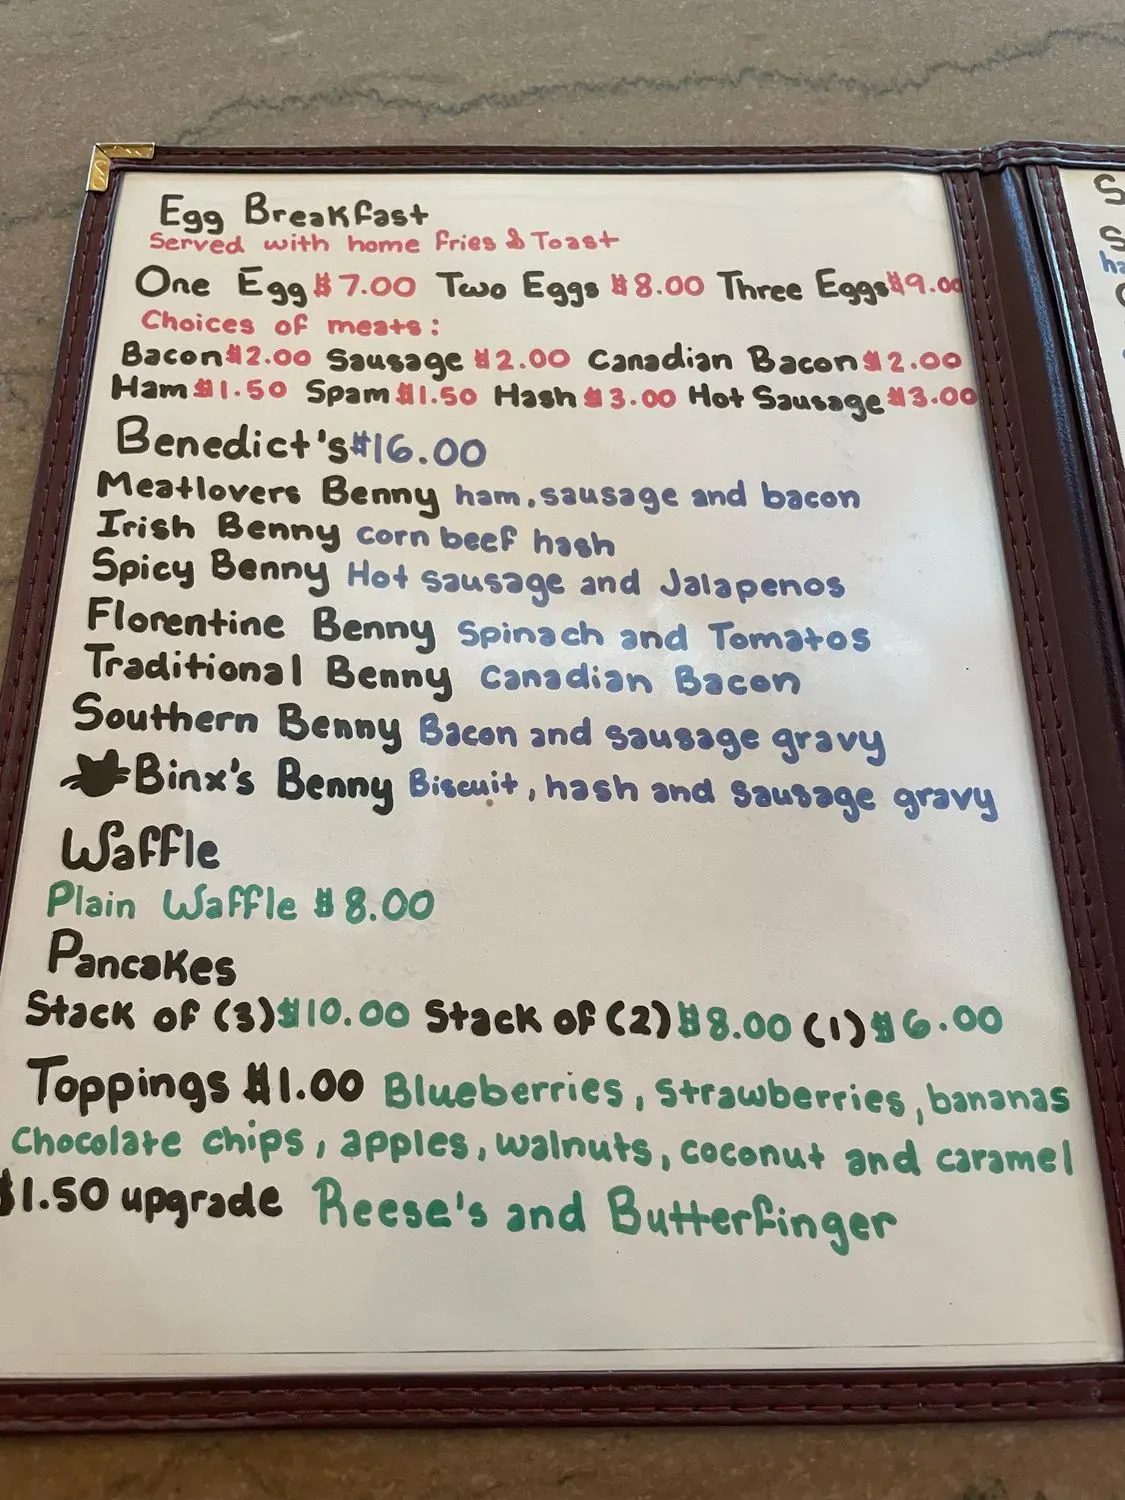 Egg Breakfast
Served with home fries & Toast
One Egg $7.00 Two Eggs $8.00 Three Eggs $9.00
Choices of meats:
Bacon $2.00 Sausage $2.00 Canadian Bacon $2.00
Ham $1.50 Spam $1.50 Hash $3.00 Hot Sausage $3.00
Benedict's $16.00
Meatlovers Benny ham, sausage and bacon
Irish Benny corn beef hash
Spicy Benny Hot sausage and Jalapenos
Florentine Benny Spinach and Tomatos
Traditional Benny Canadian Bacon
Southern Benny Bacon and sausage gravy
Binx's Benny Biscuit, hash and sausage gravy
Waffle
Plain Waffle $8.00
Pancakes
Stack of (3) $10.00 Stack of (2) $8.00 (1) $6.00
Toppings $1.00 Blueberries, strawberries, bananas
Chocolate chips, apples, walnuts, coconut and caramel
$1.50 upgrade Reese's and Butterfinger